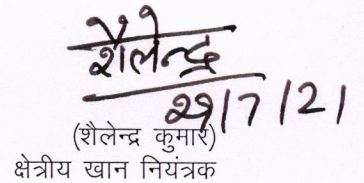 शैलेन्द्र
29/7/21
(शैलेन्द्र कुमार)
क्षेत्रीय खान नियंत्रक